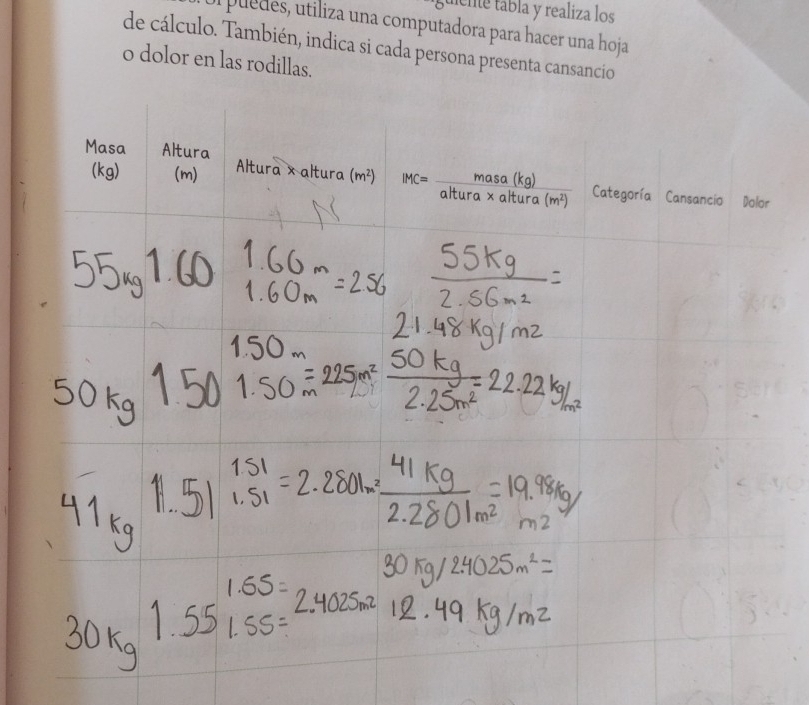 puedes, utiliza una computadora para hacer una hoja
tabla y realiza los
de cálculo. También, indica si cada persona presenta cansancio
o dolor en las rodillas.
Masa (kg)
Altura (m)
Altura x altura (m²)
IMC= masa (kg) / altura x altura (m²)
Categoría
Cansancio
Dolor
55kg
1.60
1.60 m
1.60m
=2.56
55Kg
=
2.56m2
21.48 Kg/m2
50kg
1.50
1.50 m
1.50 m
=225m²
50 kg
2.25m²
=22.22kg/m²
41kg
1.51
1.51
1.51
=2.2801m²
41 Kg
2.2801m²
=19.98kg/m2
30Kg
1.55
1.55=
1.55=
2.4025m2
30 Kg/24025m²=
12.49 Kg/m2